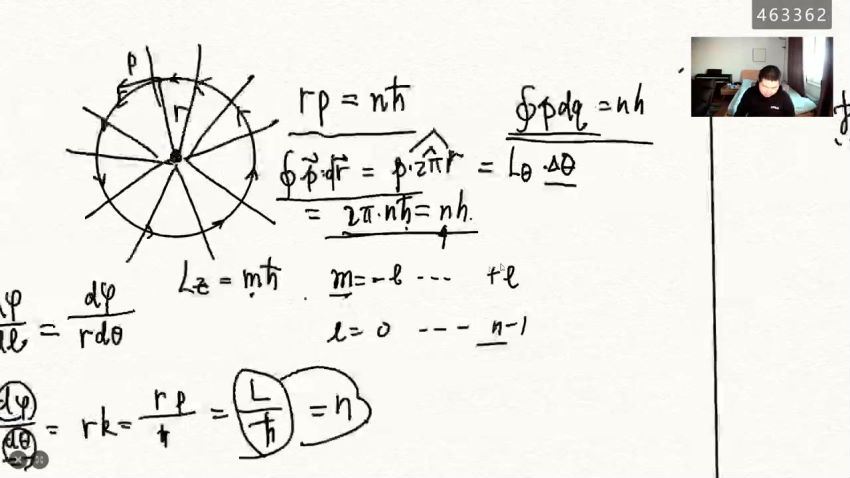 463362
p
r
rp = nħ
∮pdq = nh
∮p⃗·dr⃗ = p·2πr = Lθ·Δθ
= 2π·nħ = nh.
Lz = mħ
m = -l ... +l
l = 0 ---- n-1
dφ/dl = dφ/rdθ
dφ/dθ = rk = rp/ħ = L/ħ = n